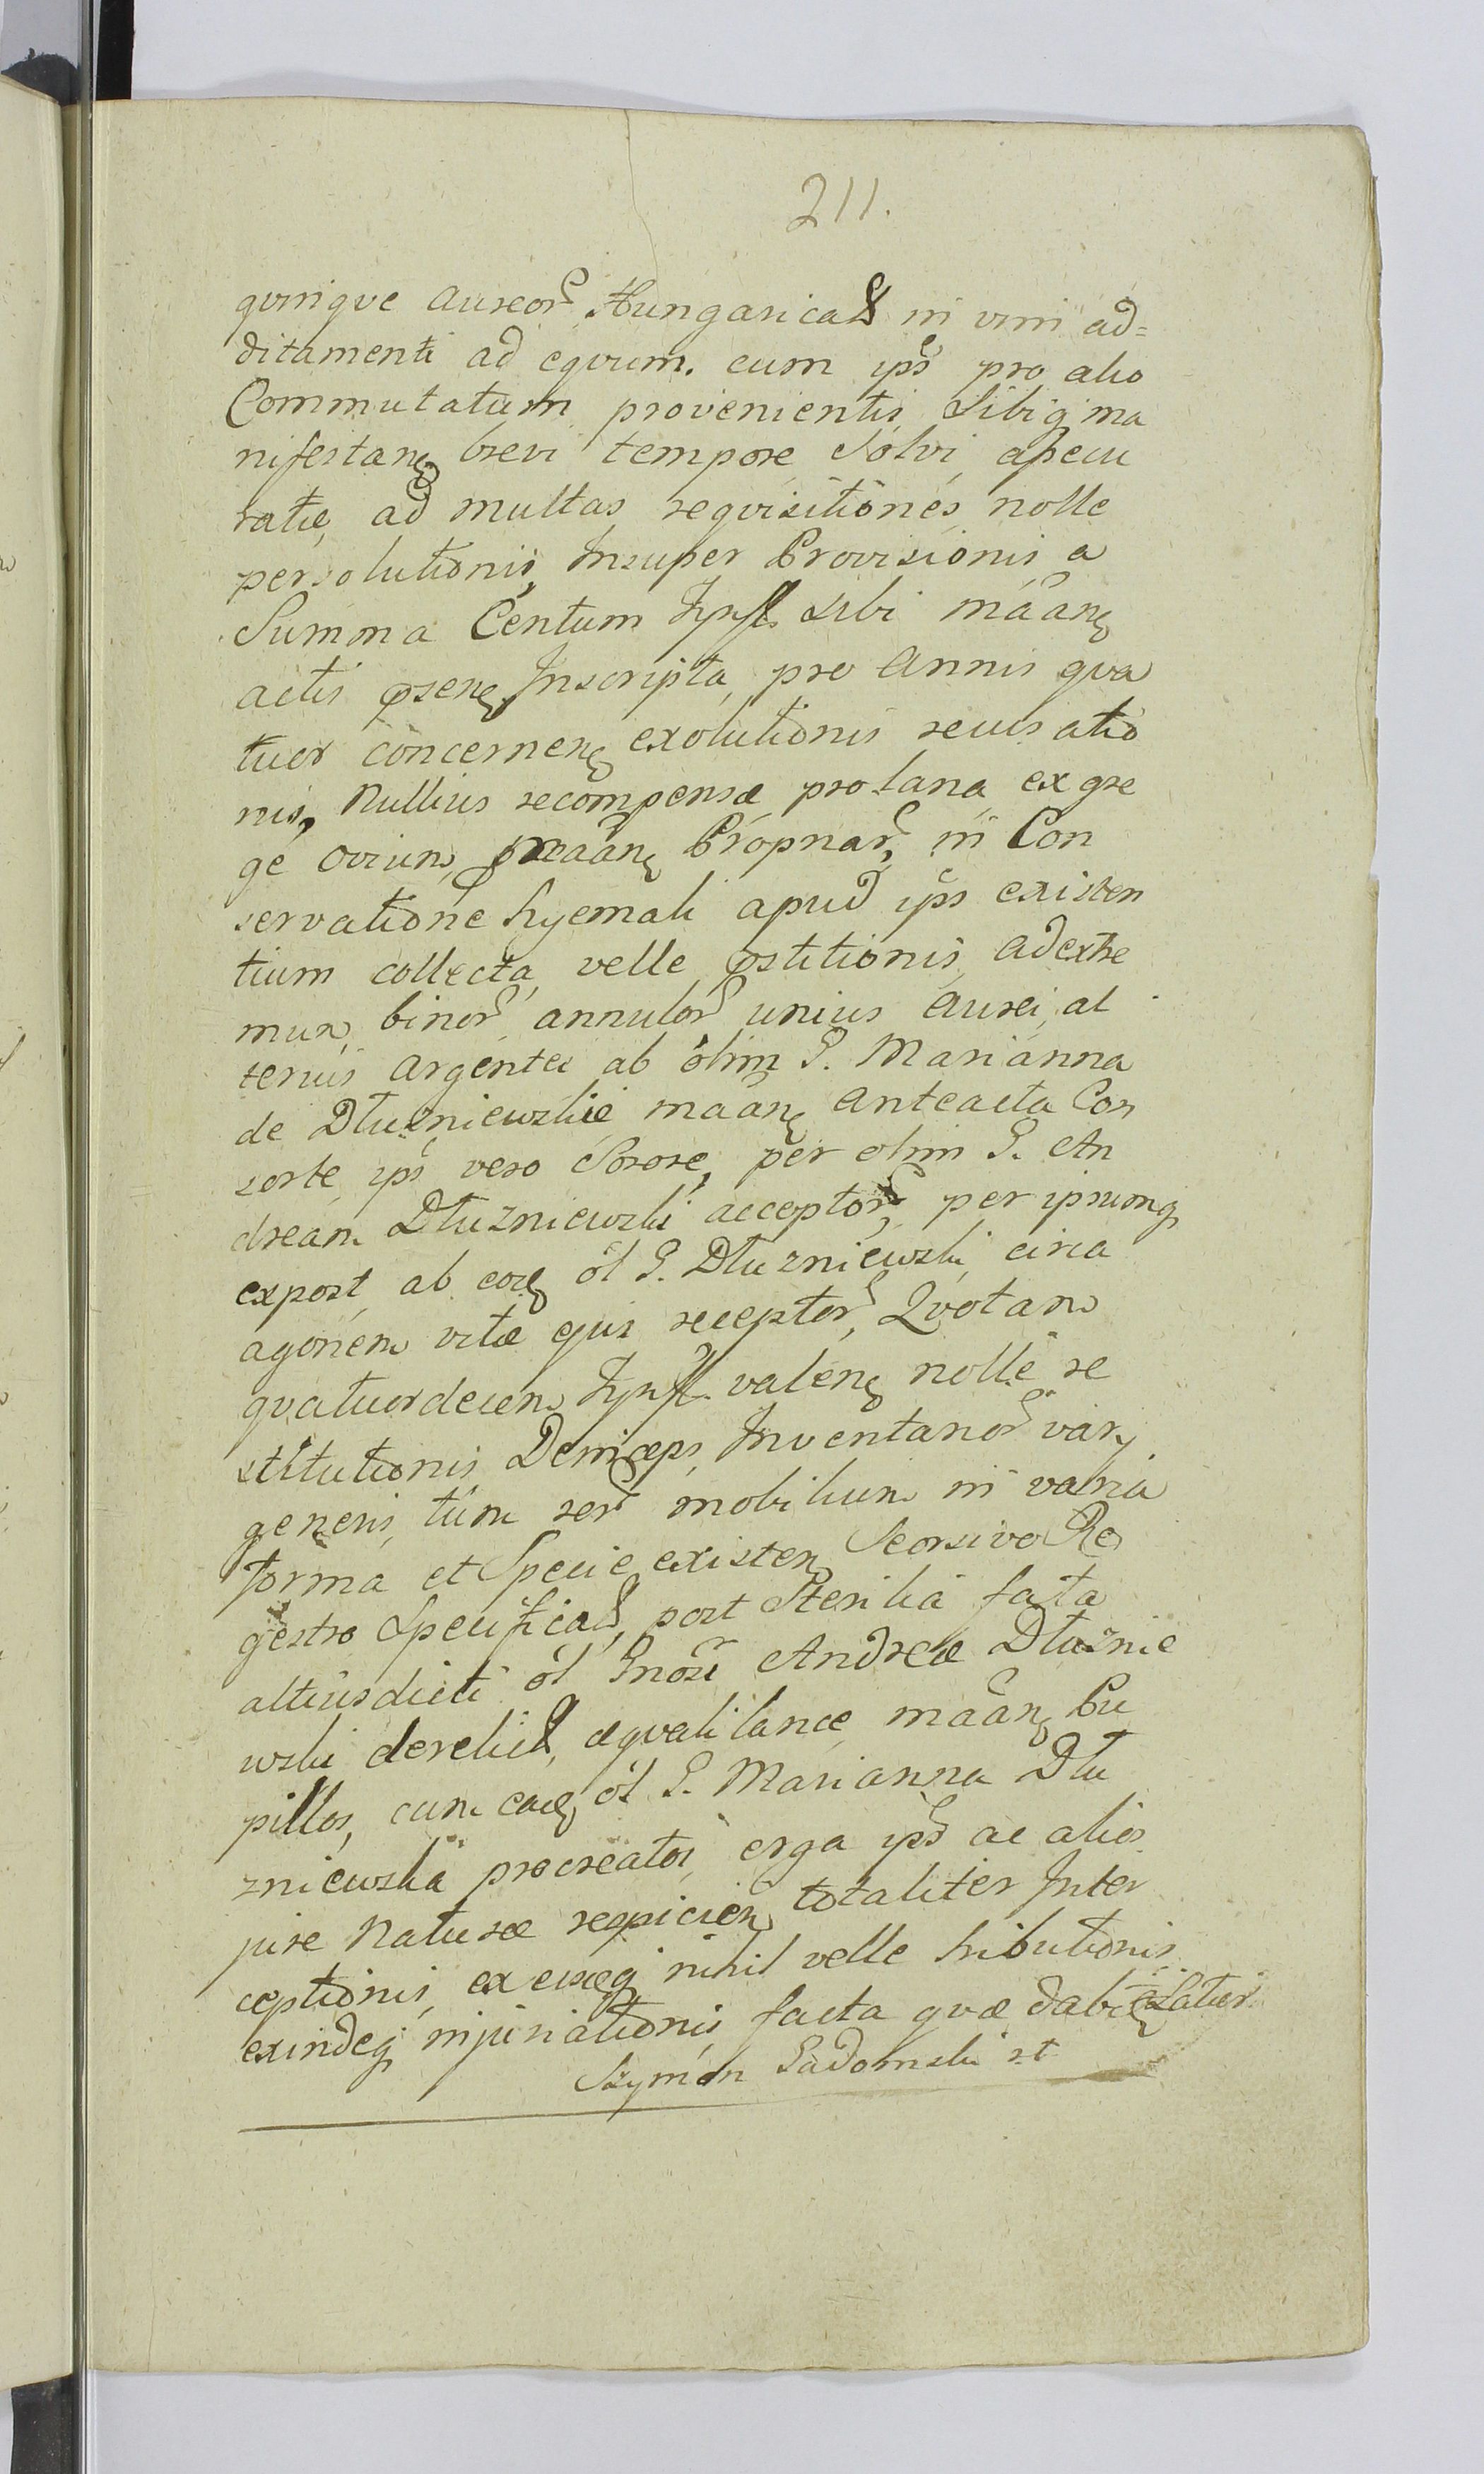 211.
qvinqve Aureor Hungarical in vim ad=
ditamenti ad eqvum. cum ips pro alio
Commutatum provenientis Sibiq ma
nifestanę brevi tempore Solvi assecu
ratæ, ad multas reqvisitiones nolle
persolutionis, Insuper Provisionis a
Summa Centum Typfl. Sibi maanę
actis prænę Inscripta, pro Annis qva
tuor concernenę exolutionis recusatio
nis, Nullius recompensæ pro lana ex gre
ge ovium, maanę Propriar, in Con
servatione hyemali apud ips existen
tium collecta, velle pstitionis, ad extre
mum, binor annulor unius Aurei, al
terius Argentei ab olim G. Marianna
de Dłużniewskie maanę Anteacta Con
sorte, ips vero Sorore, per olim G. An
dream Dłuzniewski acceptor, per ipsumq
expost, ab eoę ol G. Dłuzniewski, circa
agonem vitæ ejus receptor, Qvotam
qvatuordecem Typfl. valenę nolle re
stitutionis, Deniceps, Inventarior varÿ
generis, tum rer mobilium in varia
forma et Specie existenę Seorsivo Re
gestro Specificad, post Sterilia fata
altius dicti ol Gnosi Andreæ Dłużnie
wski derelict, æqvali lance, maanę Pu
pillos, cum eaę ol G. Marianna Dłu
zniewska procreatos, erga ips ac alios
jure Naturæ respicienę totaliter Inter
ceptionis, ex eisęq nihil velle tributionis
exindeq injuriationis facta qvæ dabię latius
Szymon Gadomski